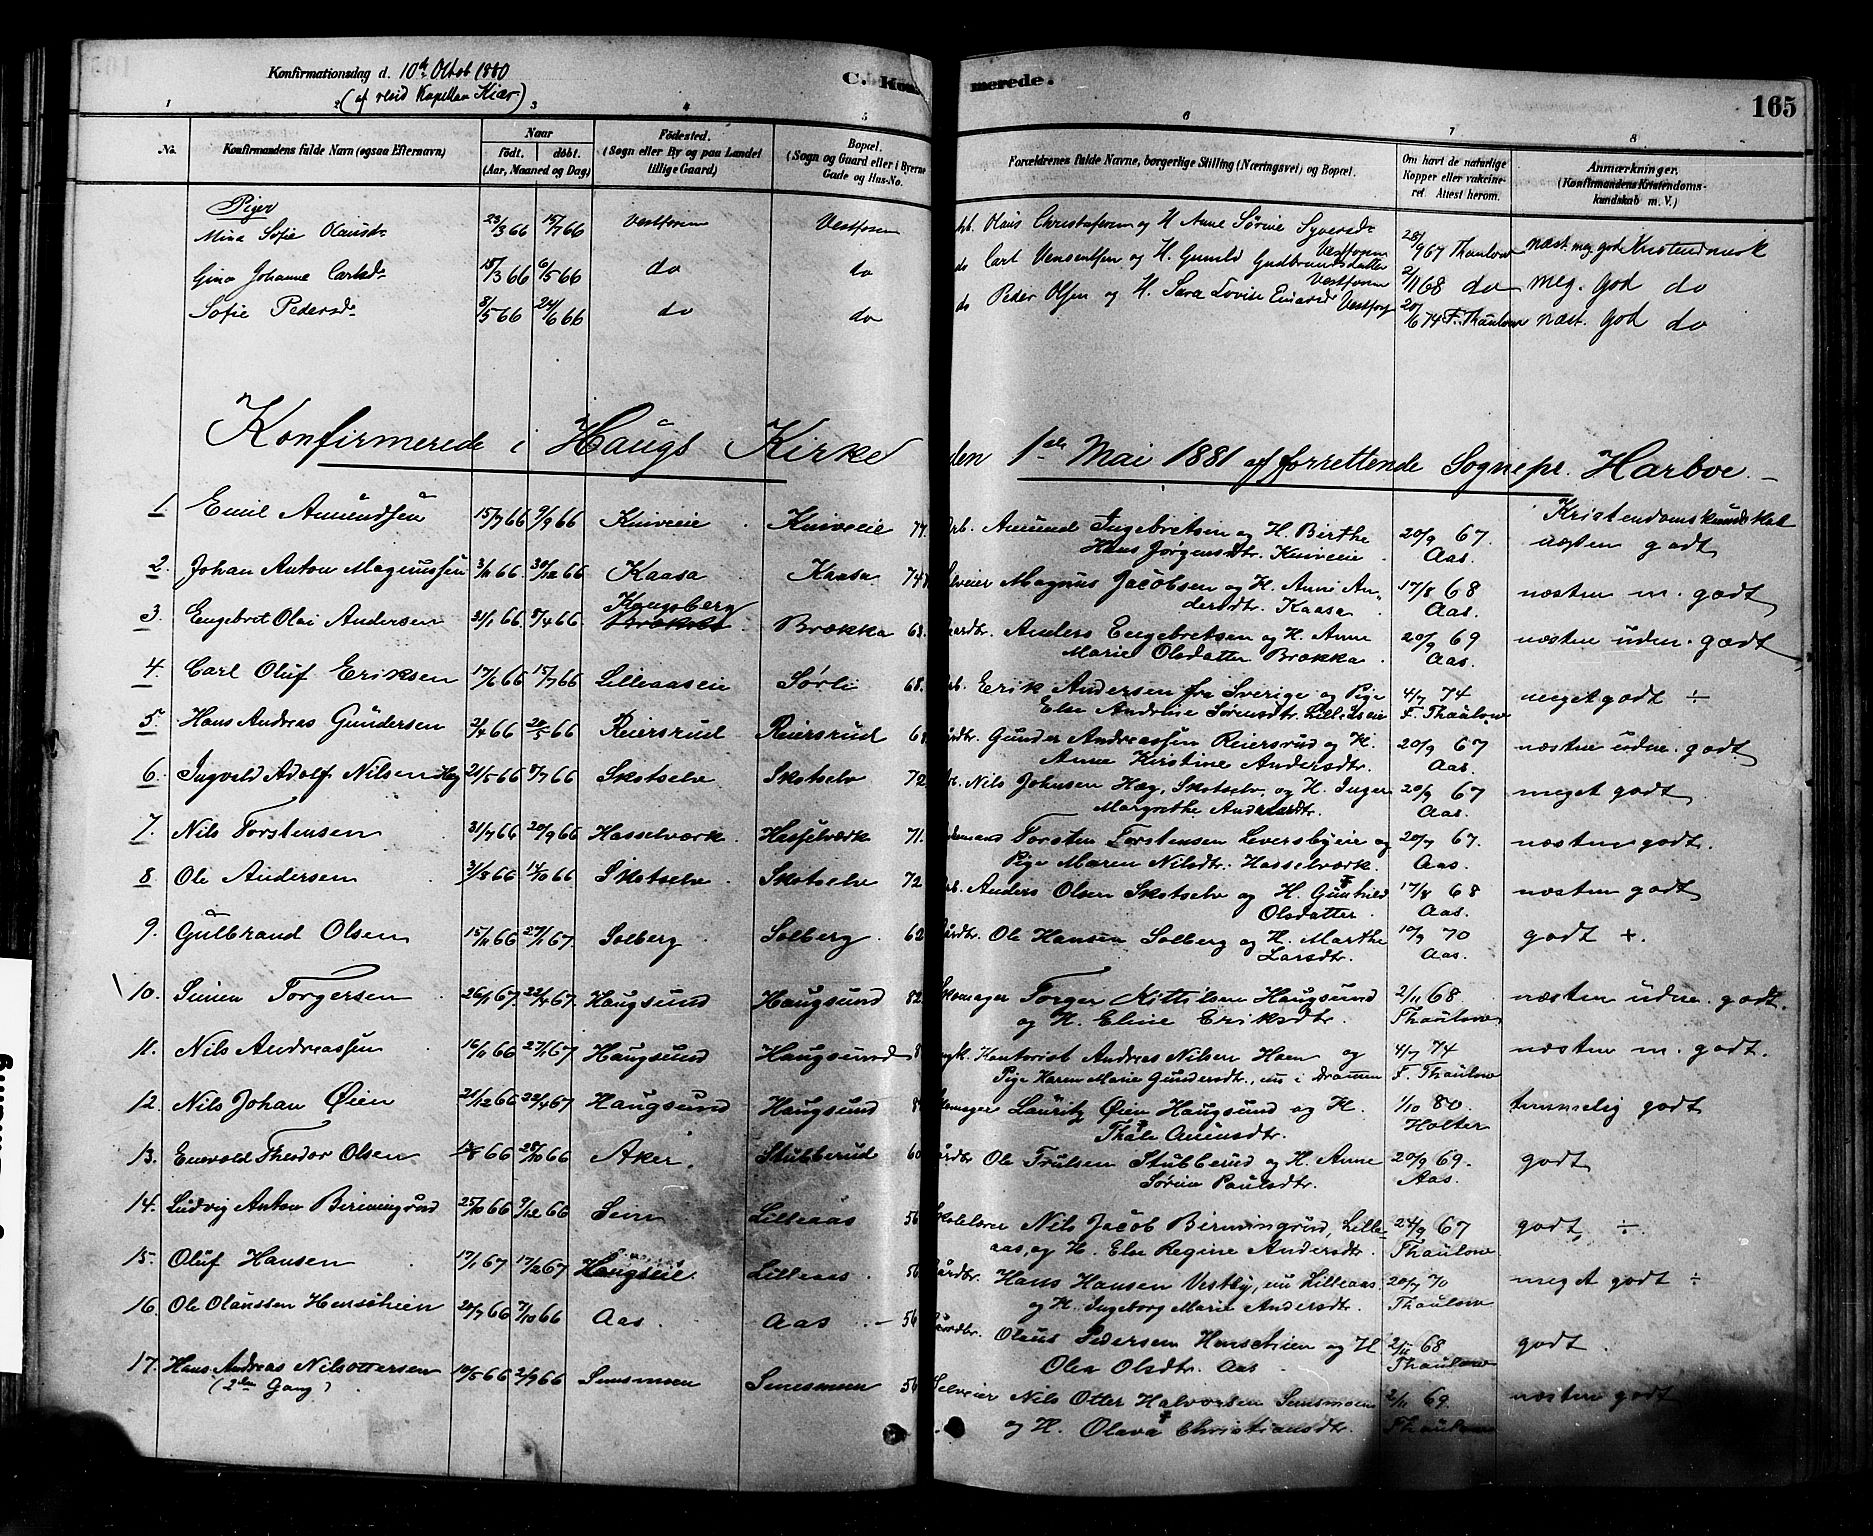 Konfirmationsdag d. 10de Oktob 1880
(af resid Kapellan Kiær)
C. Kon
merede.
165
1 2 3 4 5 6 7 8
No.
Konfirmandens fulde Navn (ogsaa Efternavn)
Naar
født. døbt.
(Aar, Maaned og Dag)
Fødested.
(Sogn eller By og paa Landet
tillige Gaard)
Bopæl.
(Sogn og Gaard eller i Byerne
Gade og Hus-No.
Forældrenes fulde Navne, borgerlige Stilling (Næringsvei) og Bopæl.
Om havt de naturlige
Kopper eller vakcine-
ret. Attest herom.
Anmærkninger.
(Konfirmandens Kristendoms-
kundskab m. V.)
Piger
Mina Sofie Olausd. 23/3 66 15/7 66 Vestfosen Vestfosen Arb. Olaus Christofersen og H. Anne Sørine Syversd. Vestfosen 28/9 67 Thaulow næst. meg. god Kristendomsk
Gina Johanne Carlsd. 15/3 66 6/5 66 do do do Carl Vensentsen og H. Gunild Gudbrandsdatter Vestfosen 2/11 68 do meg. god do
Sofie Pedersd. 8/5 66 24/6 66 do do do Peder Olsen og H. Sara Lovise Einarsd. Vestfos 20/6 74 F. Thaulow næst. god do
Konfirmerede i Haugs Kirke den 1ste Mai 1881 af forrettende Sognepr. Harboe.
Kristendomskundskab
1. Emil Amundsen 15/7 66 9/9 66 Kniveeie Kniveeie 77. Arb. Amund Ingebretsen og H. Birthe 20/9 67. næsten godt
Hans Jørgensdtr. Kniveeie Aas.
2. Johan Anton Magnussen 3/11 66 30/12 66 Kaasa Kaasa 74. Selveier Magnus Jacobsen og H. Anne An- 17/8 68 næsten m. godt
dersdtr. Kaasa. Aas.
Kongsberg
3. Engebret Olai Andersen 21/1 66. 8/4 66 Brække. Brækka 68. Gårdbr. Anders Engebretsen og H. Anne 20/9 69 næsten udm. godt
Marie Olsdatter Brækka. Aas.
4. Carl Oluf Eriksen 17/6 66 15/7 66 Lilleaaseie Sørli 68. Arb. Erik Andersen fra Sverige og Pige 4/7 74 meget godt ÷
Else Andrine Sørensdtr. Lilleaseie F. Thaulow
5. Hans Andreas Gundersen 2/4 66 20/5 66 Reiersrud Reiersrud Gårdbr. Gunder Andreassen Reiersrud og H. 20/9 67 næsten udm. godt
Anne Kirstine Andersdtr. Aas.
6. Ingvald Adolf Nilsen Hæg 21/5 66 8/7 66 Skotselv Skotselv 72 Nils Johnsen Hæg, Skotselv, og H. Inger 20/9 67 meget godt
Margrethe Andersdtr. Aas.
7. Nils Torstensen 31/7 66 20/9 66 Hasselværk Hasselværk 71. Torsten Torstensen Leversbyeie og 20/7 67. næsten godt.
Pige Maren Nilsdtr. Hasselværk. Aas.
8. Ole Andersen 3/8 66 14/10 66 Skotselv Skotselv 72 Arb. Anders Olsen Skotselv og H. Gunhild 17/8 68 næsten godt
Olsdatter. Aas.
9. Gulbrand Olsen 15/11 66 27/1 67 Solberg Solberg. 62 Gårdbr. Ole Hansen Solberg og H. Marthe 10/9 70 godt +.
Larsdtr. Aas.
10. Simen Torgersen 26/1 67 22/4 67 Haugsund Haugsund 82. Skomager Torger Kittilsen Haugsund 2/11 68. næsten udm. godt.
og H. Eline Eriksdtr. Thaulow
11. Nils Andreassen 16/11 66 27/1 67 Haugsund Haugsund Kontorist Andreas Nilsen Hoen og 4/7 74 næsten m. godt.
Pige Karen Marie Gundersdtr., nu i Drammen F. Thaulow
12. Nils Johan Øien 21/12 66 22/4 67 Haugsund Haugsund Skomager Lauritz Øien Haugsund og H. 1/10 80. temmelig godt
Thale Amundsdtr. Holter
13. Enevold Theodor Olsen 66 28/10 66 Aker. Stubberud 60 Gårdbr. Ole Trulsen Stubberud og H. Anne 20/9 69. godt
Sørine Paulsdtr. Aas.
14. Ludvig Anton Berimingrud 25/10 66 9/12 66 Sem Lilleaas 56 Skolelærer Nils Jacob Birmingrud, Lille- 24/9 67 godt. ÷.
aas, og H. Else Regine Andersdtr. Thaulow
15. Oluf Hansen 17/1 67 17/2 67 Haugseie. Lilleaas. 56 Gårdbr. Hans Hansen Vestby, nu Lilleaas 20/7 70 meget godt ÷
og H. Ingeborg Marie Andersdtr. Thaulow
16. Ole Olaussen Hensehien 20/7 66 7/10 66 Aas. Aas 56 Gårdbr. Olaus Pedersen Hensehien og H 2/11 68 godt.
Olea Olsdtr. Aas Thaulow
17. Hans Andreas Nilsottersen 10/5 66 2/9 66 Semsmoen Semsmoen 56 Selveier Nils Otter Halvorsen Semsmoen 2/11 69. næsten godt
(2den Gang) og H. Olava Christiansdtr. Thaulow